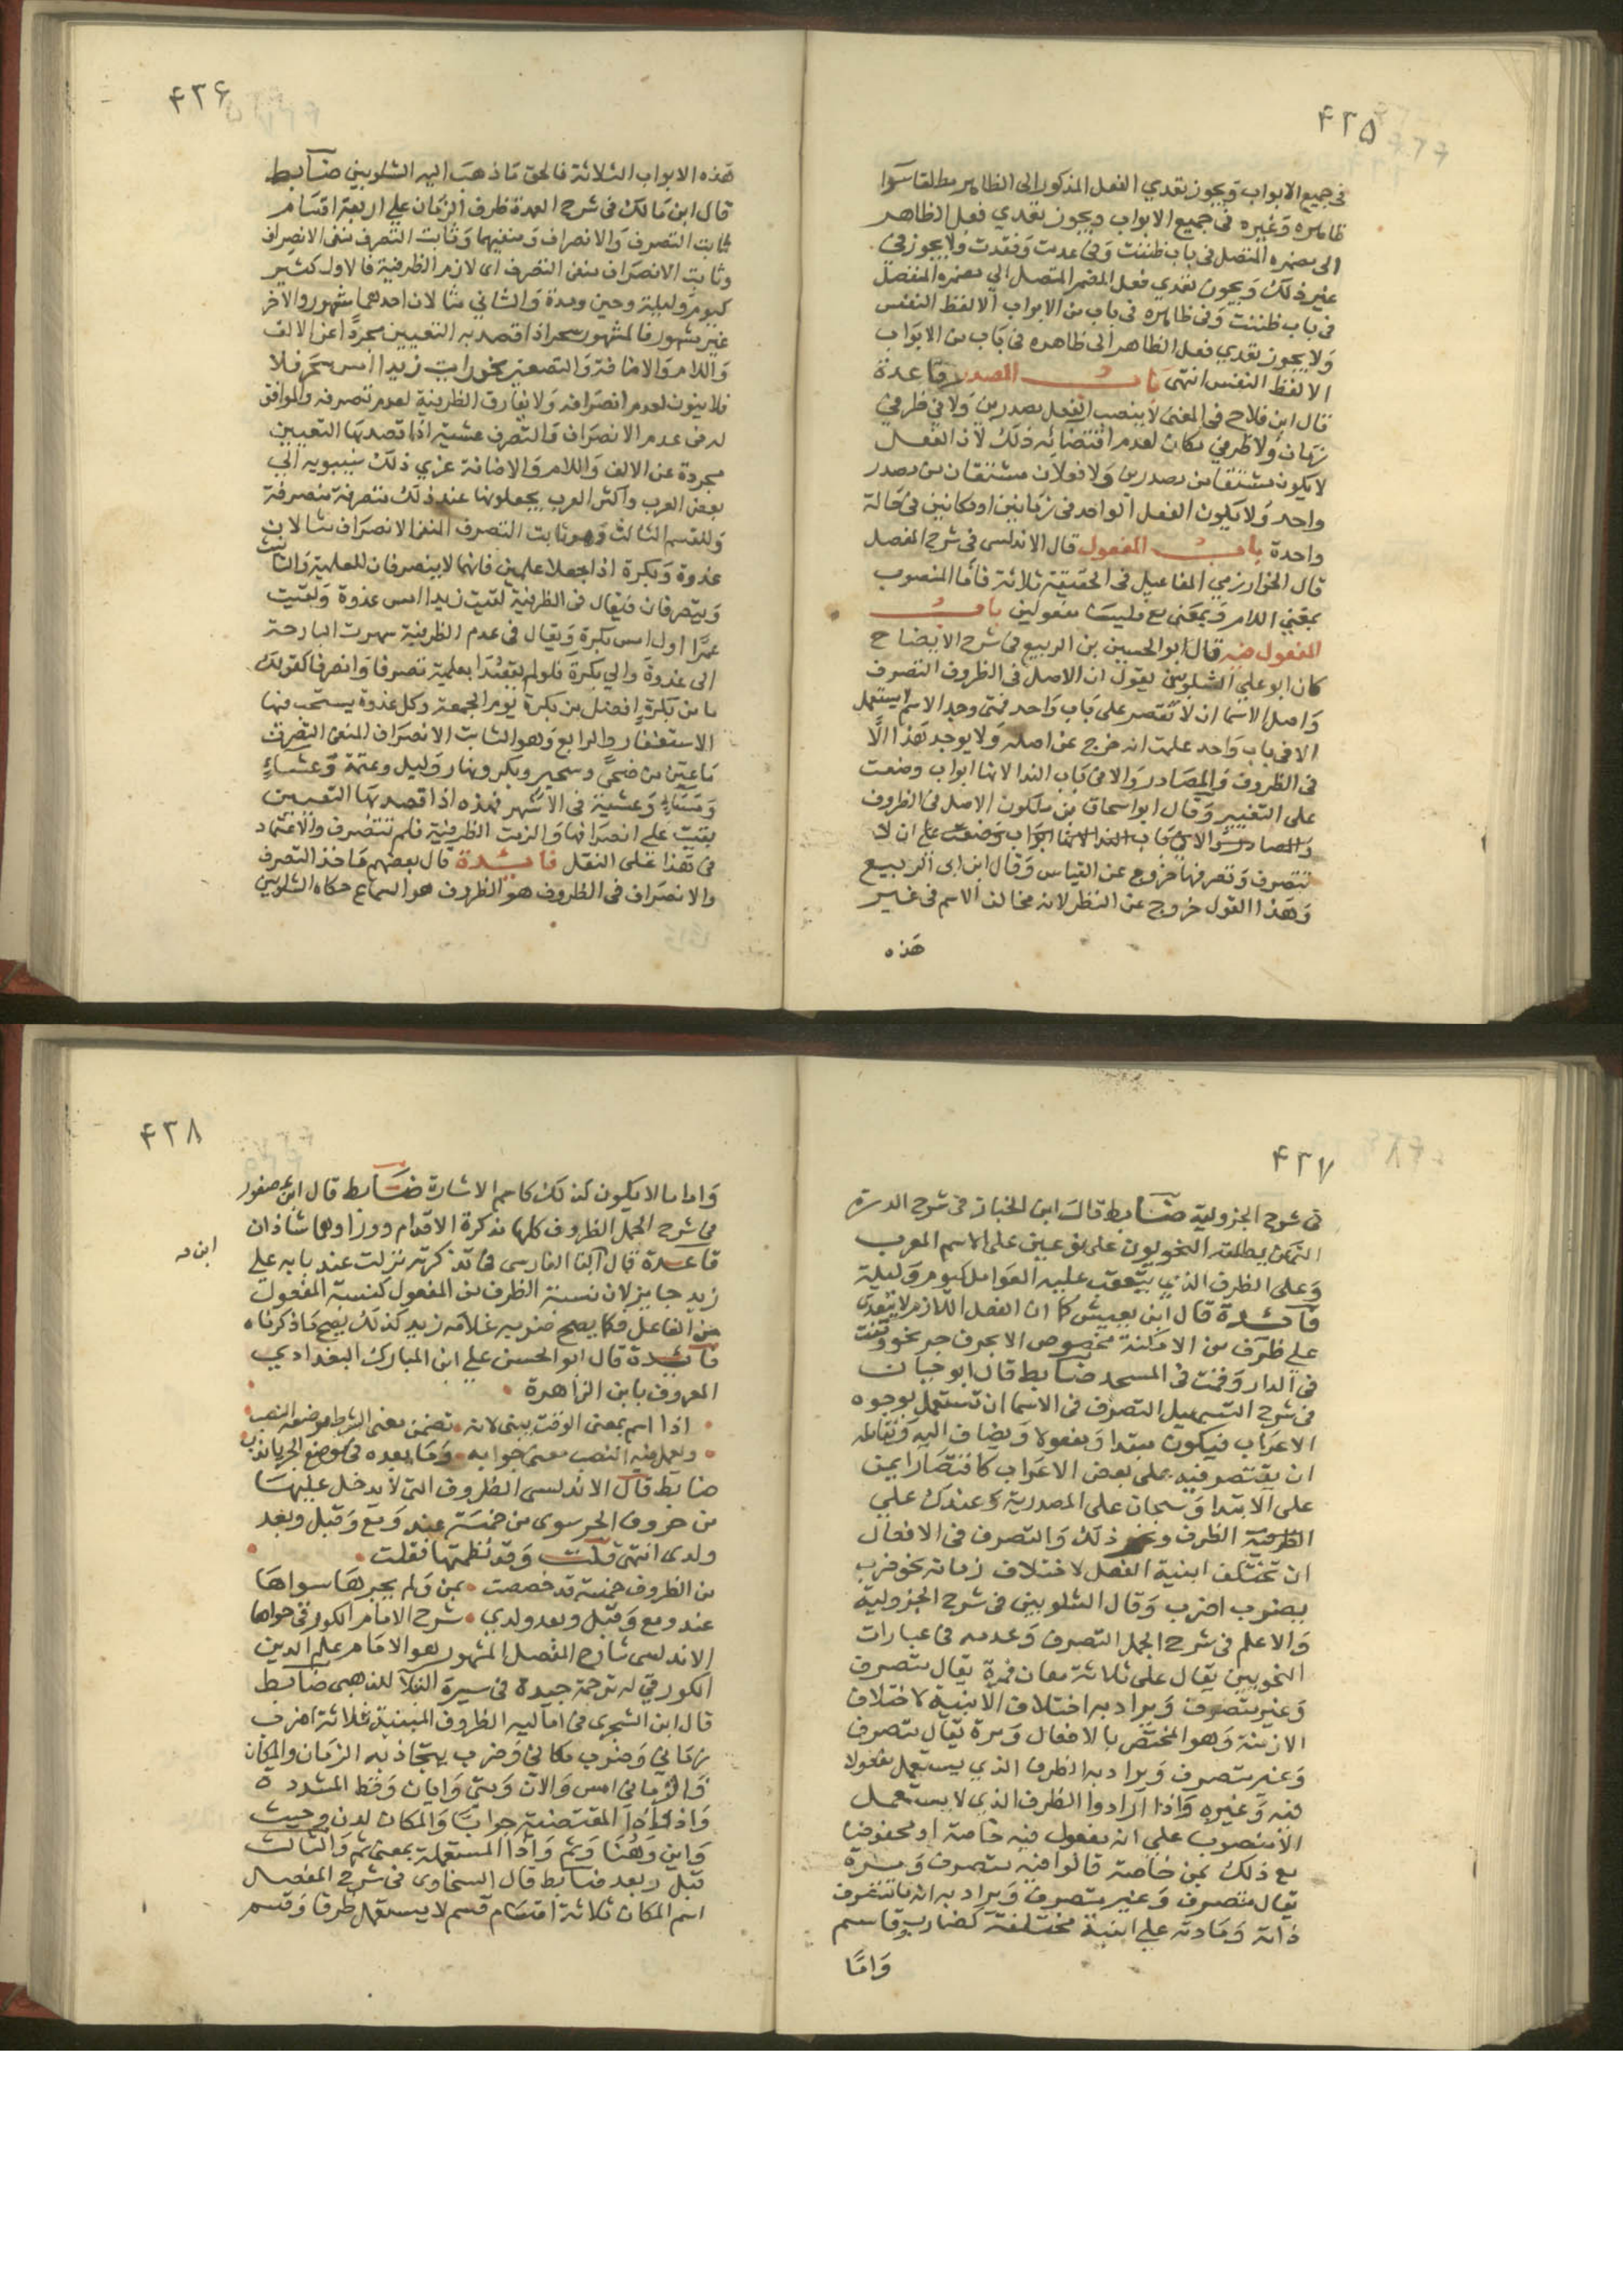 ۴۲۵
في جميع الابواب ويجوز تعدي الفعل المذكور الى الظاهر مطلقا سوا
ظاهره وغيره في جميع الابواب ويجوز تعدي فعل الظاهر
الى مضمره المتصل في باب ظننت وفي عدمت وفقدت ولا يجوز في
غير ذلك ويجوز تعدي فعل المضمر المتصل الي مضمره المنفصل
في باب ظننت وفي ظاهره في باب من الابواب الا لفظ النفس
ولا يجوز تعدي فعل الظاهر الى ظاهره في باب من الابواب
الا لفظ النفس انتهى باب المصدر قاعدة
قال ابن فلاح في المغني لا ينصب الفعل مصدرين ولا في ظرفي
زمان ولا ظرفي مكان لعدم اقتضائه ذلك لان الفعل
لا يكون مشتقا من مصدرين ولا فعلان مشتقان من مصدر
واحد ولا يكون الفعل الواحد في زمانين او مكانين في حالة
واحدة باب المفعول قال الاندلسي في شرح المفصل
قال الخوارزمي المفاعيل في الحقيقة ثلاثة فاما المنصوب
بمعني اللام وبمعني مع فليسا مفعولين باب
المفعول فيه قال ابو الحسين بن الربيع في شرح الايضاح
كان ابو علي الشلوبين يقول ان الاصل في الظروف التصرف
واصل الاسما ان لا تقتصر على باب واحد فمتى وجد الاسم لا يستعمل
الا في باب واحد علمت انه خرج عن اصله ولا يوجد هذا الا
في الظروف والمصادر والا في باب الندا لانها ابواب وضعت
على التغيير وقال ابو اسحاق بن ملكون الاصل في الظروف
والمصادر والا في باب الندا لانها ابواب وضعت على ان لا
تتصرف وتصرفها خروج عن القياس وقال ابن ابي الربيع
وهذا القول خروج عن النظر لانه مخالف الاسم في غير
هذه
۴۲۶
هذه الابواب الثلاثة فالحق ما ذهب اليه الشلوبين ضابط
قال ابن مالك في شرح العمدة ظرف الزمان علي اربعة اقسام
ثابت التصرف والانصراف ومنفيهما وثابت التصرف منفي الانصراف
وثابت الانصراف منفي التصرف اى لازم الظرفية فالاول كثير
كيوم وليلة وحين ومدة والثاني مثالان احدهما مشهور والاخر
غير مشهور فالمشهور سحر اذا قصد به التعيين مجردا عن الالف
واللام والاضافة والتصغير نحو رايت زيدا امس سحر فلا
فلا ينون لعدم انصرافه ولا يفارق الظرفية لعدم تصرفه والموافق
له في عدم الانصراف والتصرف عشية اذا قصد بها التعيين
مجردة عن الالف واللام والاضافة عزي ذلك سيبويه الي
بعض العرب واكثر العرب يجعلونها عند ذلك متصرفة منصرفة
وللقسم الثالث وهو ثابت التصرف المنفي الانصراف مثالان
غدوة وبكرة اذا جعلا علمين فانهما لا ينصرفان للعلمية والتانيث
ويتصرفان فيقال في الظرفية لقيت زيدا امس غدوة ولقيت
عمرا اول امس بكرة ويقال في عدم الظرفية سهرت البارحة
الى غدوة والي بكرة فلو لم يقصدا بعلمية تصرفا وانصرفا كقولك
ما من بكرة افضل من بكرة يوم الجمعة وكل غدوة يستحب فيها
الاستغفار والرابع وهو الثابت الانصراف المنفي التصرف
ما عين من ضحى وسحير وبكر ونهار وليل وعتمة وعشاء
ومساء وعشية في الاشهر فهذه اذا قصد بها التعيين
بقيت على انصرافها والزمت الظرفية فلم تتصرف والاعتماد
في هذا على النقل فائدة قال بعضهم ماخذ التصرف
والانصراف في الظروف هو الظروف هو السماع حكاه الشلوبين
۴۲۷
في شرح الجزولية ضابط قال ابن الخباز في شرح الدرة
التمكن يطلقه النحويون على نوعين على الاسم المعرب
وعلى الظرف الذي يتعقب عليه العوامل كيوم وليلة
فائدة قال ابن يعيش كما ان الفعل اللازم لا يتعدى
على ظرف من الامكنة مخصوص الا بحرف جر نحو وقفت
في الدار وقمت في المسجد ضابط قال ابو حيان
في شرح التسهيل التصرف في الاسما ان تستعمل بوجوه
الاعراب فيكون مبتدا ومفعولا ويضاف اليه ومقابله
ان يقتصر فيه على بعض الاعراب كاقتصار ايمن
على الابتدا وسبحان على المصدرية وعندك علي
الظرفية الظرف ونحو ذلك والتصرف في الافعال
ان تختلف ابنية الفعل لاختلاف زمانه نحو ضرب
يضرب اضرب وقال الشلوبين في شرح الجزولية
والاعلم في شرح الجمل التصرف وعدمه في عبارات
النحويين يقال على ثلاثة معان فمرة يقال متصرف
وغير متصرف ويراد به اختلاف الابنية لاختلاف
الازمنة وهو المختص بالافعال ومرة يقال متصرف
وغير متصرف ويراد به الظرف الذي يستعمل مفعولا
فيه وغيره واذا ارادوا الظرف الذي لا يستعمل
الا منصوب على انه مفعول فيه خاصة او مخفوضا
مع ذلك بمن خاصة قالوا فيه متصرف ومرة
يقال متصرف وغير متصرف ويراد به انه ما تتصرف
ذاته ومادته علي ابنية مختلفة كضارب وقاسم
واما
۴۲۸
واما ما لا يكون كذلك كاسم الاشارة ضابط قال ابن عصفور
في شرح الجمل الظروف كلها مذكرة الا قدام وورا وهما شاذان
قاعدة قال الفارسي في تذكرته نزلت عند بابه علي
زيد جايز لان نسبة الظرف من المفعول كنسبة المفعول
من الفاعل فكما يصح ضربه غلامه زيد كذلك يصح ما ذكرناه
فائدة قال ابو الحسن علي ابن المبارك البغدادي
المعروف بابن الزاهرة
اذا اسم بمعنى الوقت يبنى لانه تضمن معنى الشرط موضعه النصب
ويعمل فيه النصب معنى جوابه وما بعده في موضع الجر يا ندب
ضابط قال الاندلسي الظروف التي لا يدخل عليها
من حروف الجر سوى من خمسة عند ومع وقبل وبعد
ولدى انتهى قلت وقد نظمتها فقلت
من الظروف خمسة قد خصصت بمن ولم يجرها سواها
عند ومع وقبل وبعد ولدي شرح الامام اللورقي حواها
الاندلسي شارح المفصل المشهور هو الامام علم الدين
اللورقي له ترجمة جيدة في سيرة النبلآ للذهبي ضابط
قال ابن الشجري في اماليه الظروف المبنية ثلاثة اضرب
زماني وضرب مكاني وضرب يتجاذبه الزمان والمكان
فالزماني امس والآن ومتى وايان وقط المشددة
واذ واذا المقتضية جوابا والمكان لدن وحيث
واين وهنا وثم واذا المستعملة بمعنى ثم والثالث
قبل وبعد ضابط قال السخاوي في شرح المفصل
اسم المكان ثلاثة اقسام قسم لا يستعمل ظرفا وقسم